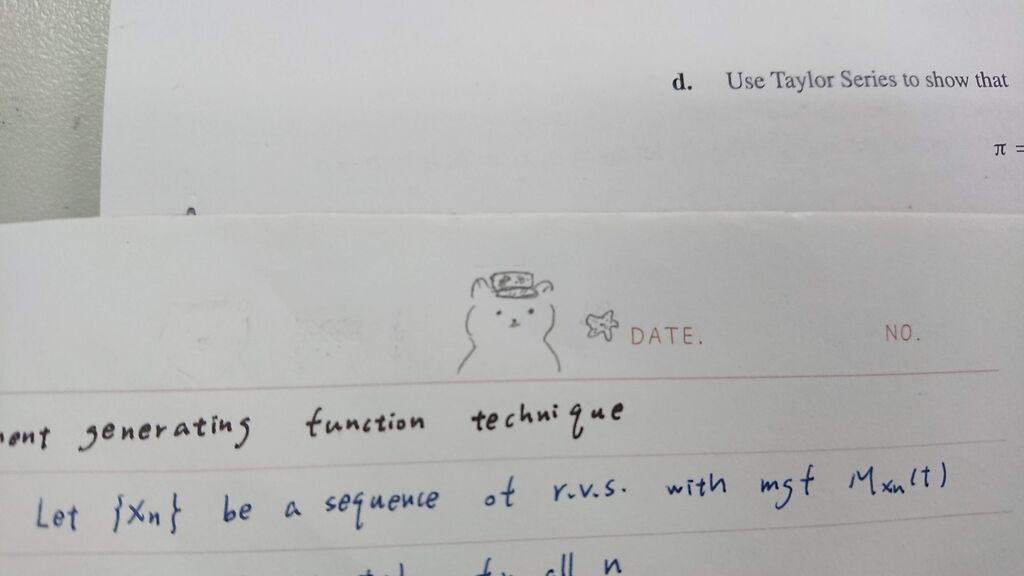 d. Use Taylor Series to show that
π =
DATE. NO.
generating function technique
Let {Xn} be a sequence of r.v.s. with mgf Mxn(t)
all n